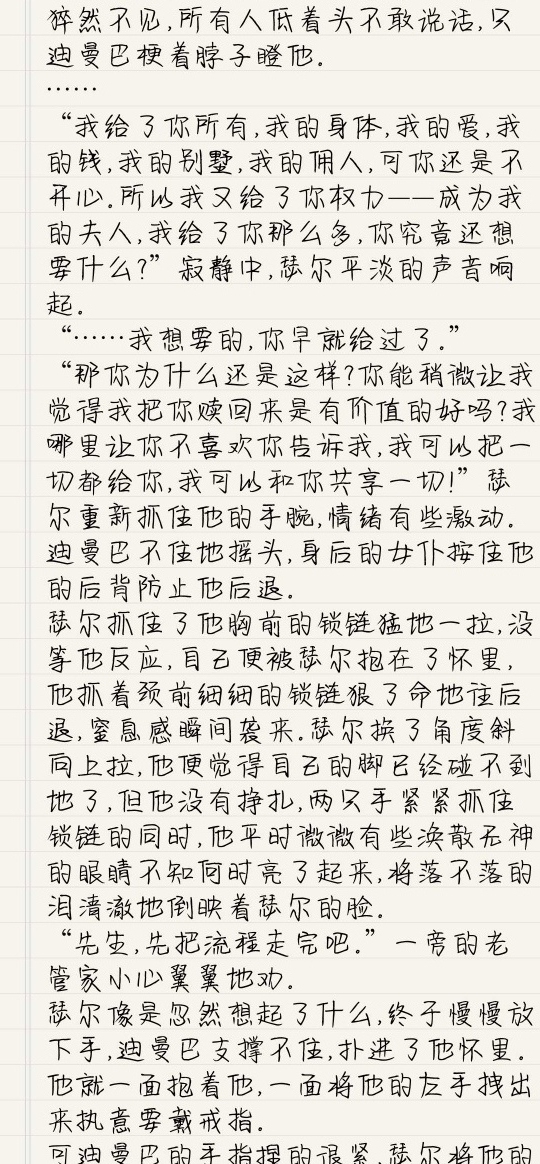 猝然不见,所有人低着头不敢说话,只
迪曼巴梗着脖子瞪他.
……
“我给了你所有,我的身体,我的爱,我
的钱,我的别墅,我的佣人,可你还是不
开心.所以我又给了你权力——成为我
的夫人,我给了你那么多,你究竟还想
要什么?”寂静中,瑟尔平淡的声音响
起.
“……我想要的,你早就给过了.”
“那你为什么还是这样?你能稍微让我
觉得我把你赎回来是有价值的好吗?我
哪里让你不喜欢你告诉我,我可以把一
切都给你,我可以和你共享一切!”瑟
尔重新抓住他的手腕,情绪有些激动.
迪曼巴不住地摇头,身后的女仆按住他
的后背防止他后退.
瑟尔抓住了他胸前的锁链猛地一拉,没
等他反应,自己便被瑟尔抱在了怀里,
他抓着颈前细细的锁链狠了命地往后
退,窒息感瞬间袭来.瑟尔换了角度斜
向上拉,他便觉得自己的脚已经碰不到
地了,但他没有挣扎,两只手紧紧抓住
锁链的同时,他平时微微有些涣散无神
的眼睛不知何时亮了起来,将落不落的
泪清澈地倒映着瑟尔的脸.
“先生,先把流程走完吧.”一旁的老
管家小心翼翼地劝.
瑟尔像是忽然想起了什么,终于慢慢放
下手,迪曼巴支撑不住,扑进了他怀里.
他就一面抱着他,一面将他的左手拽出
来执意要戴戒指.
可迪曼巴的手指捏的很紧,瑟尔将他的